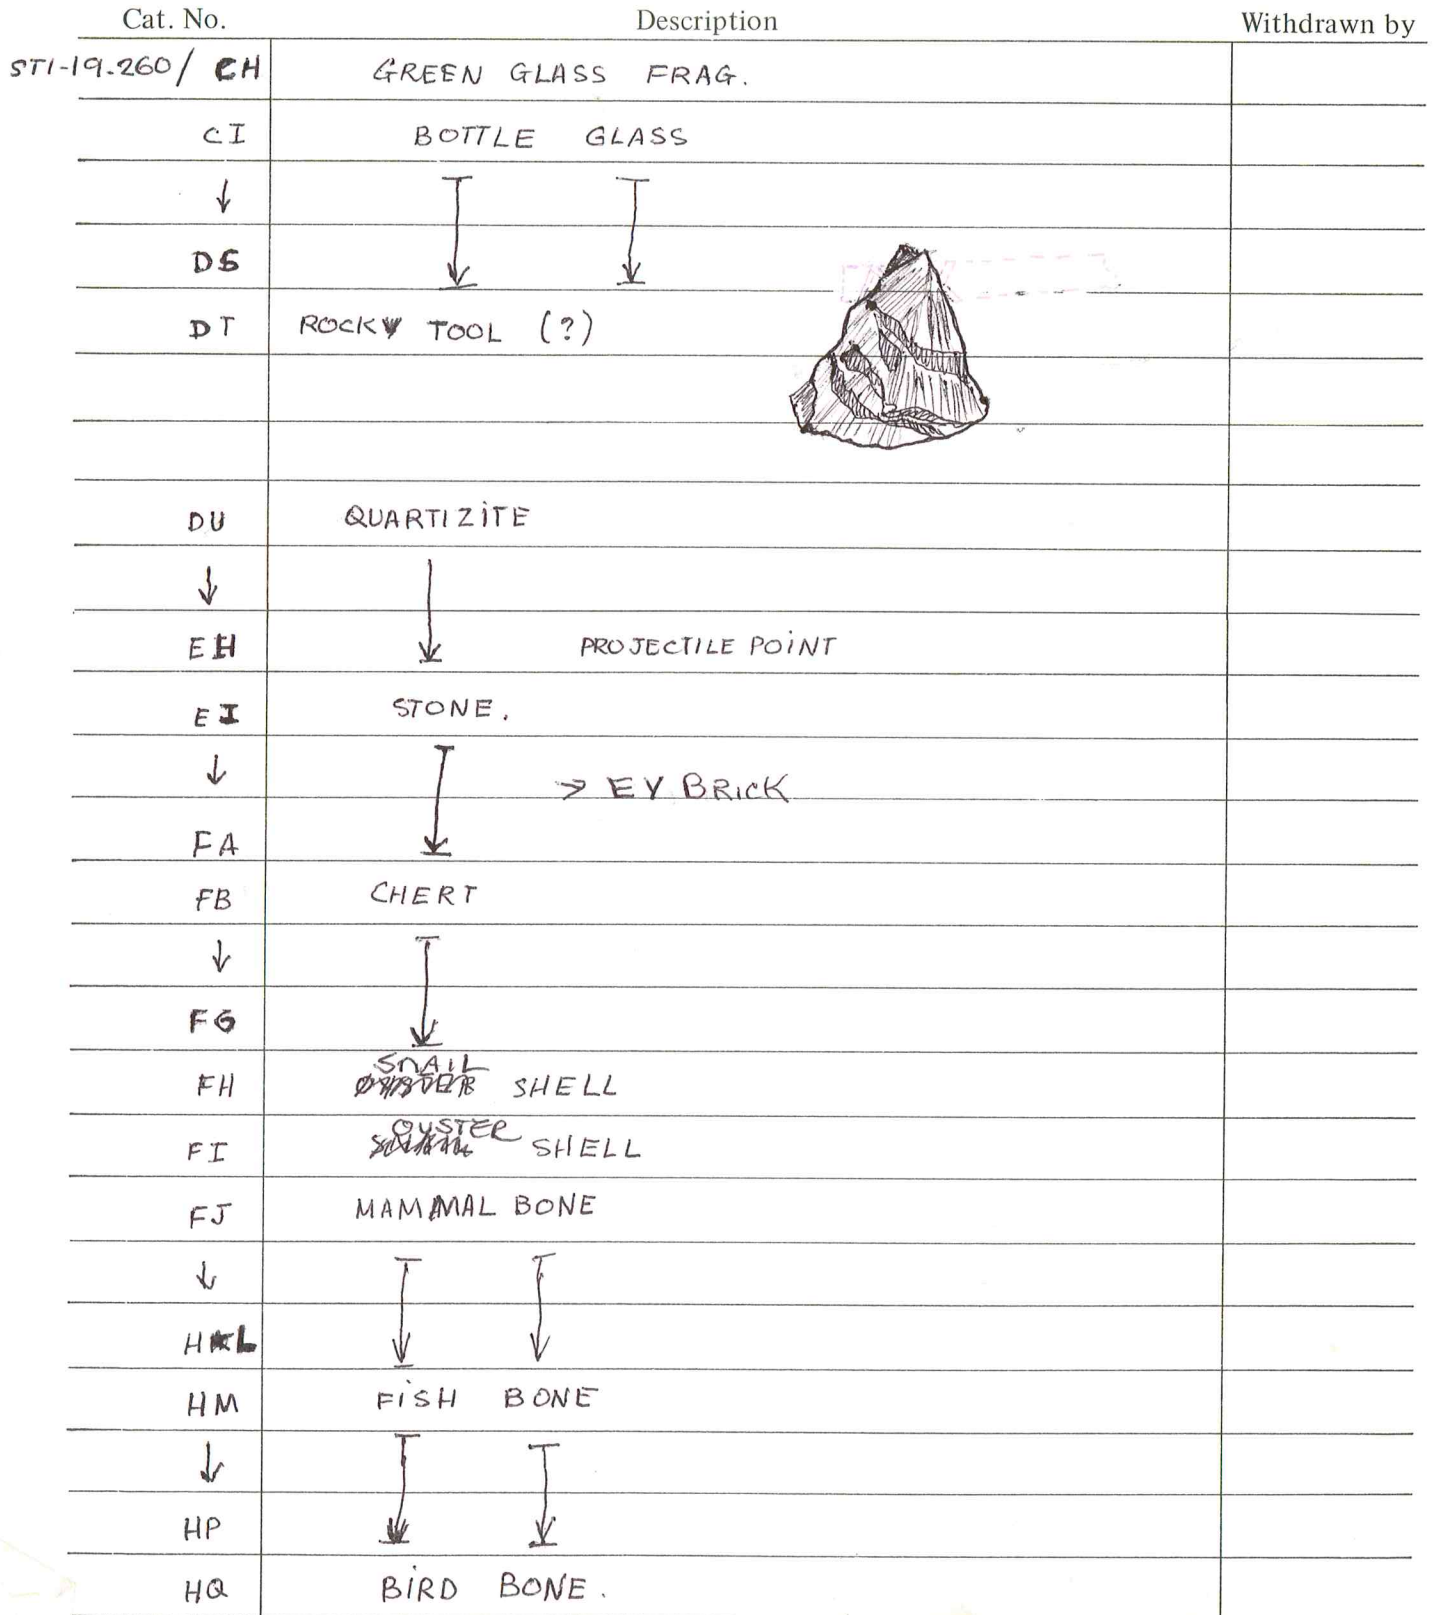 Cat. No. Description Withdrawn by
STI-19.260/ CH GREEN GLASS FRAG.
CI BOTTLE GLASS
↓
DS
DT ROCK TOOL (?)
DU QUARTIZITE
↓
EH PROJECTILE POINT
EI STONE.
↓ → EY BRICK
FA
FB CHERT
↓
FG
FH SNAIL SHELL
FI OYSTER SHELL
FJ MAMMAL BONE
↓
HL
HM FISH BONE
↓
HP
HQ BIRD BONE.